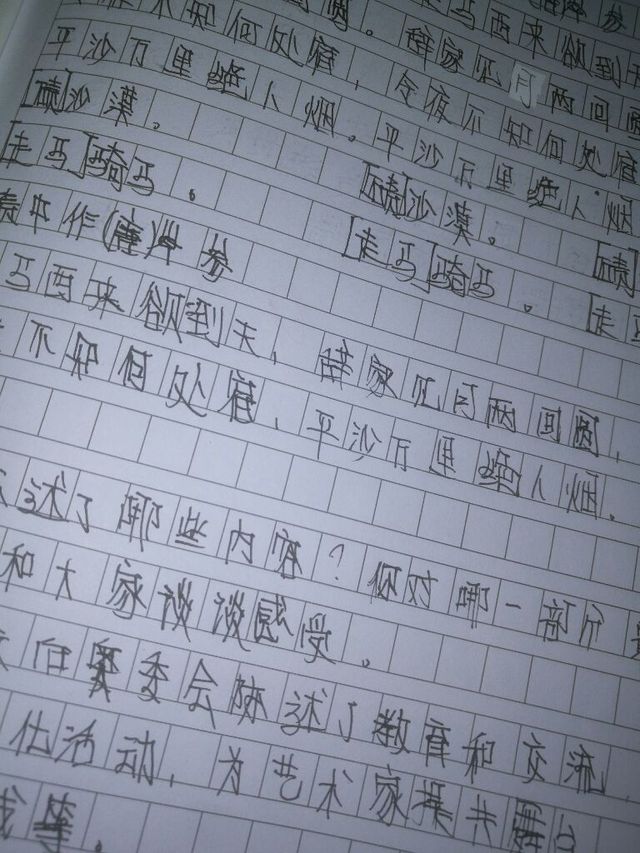 马西来欲到
圆。辞家见月两回圆
不知何处宿，今夜不知何处宿
平沙万里绝人烟。平沙万里绝人烟
[碛]沙漠。 [碛]沙漠。 [碛
[走马]骑马。 [走马]骑马。 [走马
碛中作(唐)岑参
马西来欲到天，辞家见月两回圆，
不知何处宿，平沙万里绝人烟。
述了哪些内容？你对哪一部分
和大家谈谈感受。
委会概述了教育和交流
出活动，为艺术家提共舞台
挚。